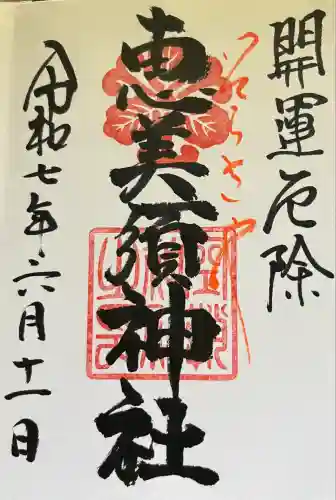 開運厄除
つくらさや
恵美須神社
令和七年六月十一日